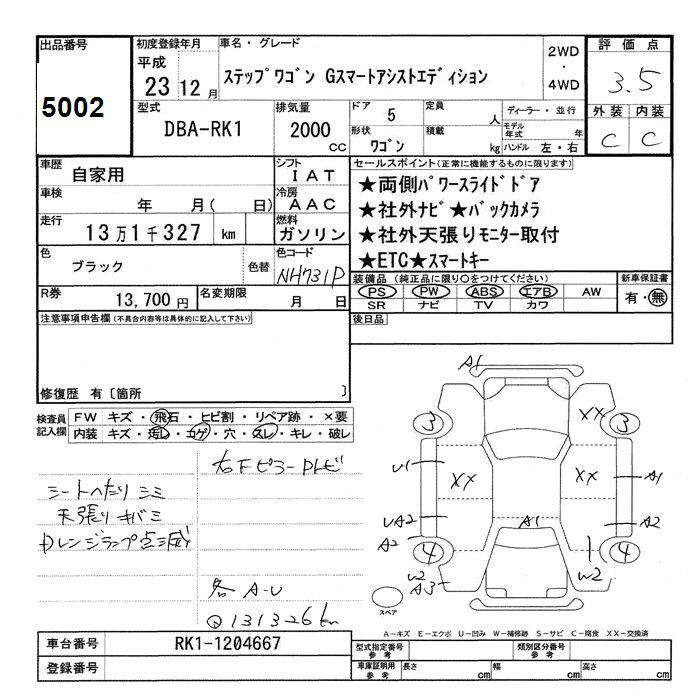 出品番号
5002
初度登録年月
平成
23 12 月
車名・グレード
ステップワゴン Gスマートアシストエディション
2WD
・
4WD
評価点
3.5
外装 内装
C C
型式
DBA-RK1
排気量
2000
CC
ドア 5
形状
ワゴン
定員
人
積載
kg
ディーラー・並行
モデル年式 年
ハンドル 左・右
車歴
自家用
シフト
IAT
車検
年 月( 日)
冷房
AAC
走行
13万1千327 km
燃料
ガソリン
色
ブラック
色替
色コード
NH731P
R券
13,700 円
名変期限
月 日
セールスポイント(正常に機能するものに限ります)
★両側パワースライドドア
★社外ナビ★バックカメラ
★社外天張りモニター取付
★ETC★スマートキー
装備品 (純正品に限り○をつけてください)
PS PW ABS エアB AW
SR ナビ TV カワ
新車保証書
有・無
後日品
注意事項申告欄(不具合内容等は具体的に記入して下さい)
修復歴 有〔箇所 〕
検査員
記入欄
FW キズ・飛石・ヒビ割・リペア跡・×要
内装 キズ・汚レ・コゲ・穴・スレ・キレ・破レ
右Fピラートレビ
シートへたりシミ
天張りキバミ
Dレンジランプ点滅
各A-U
Q131326km
A1
3
XX
3
U1
XX
XX
A1
UA2
A1
A2
A2
4
4
W2
A3
W2
スペア
A-キズ E-エクボ U-凹み W-補修跡 S-サビ C-腐食 XX-交換済
車台番号
RK1-1204667
登録番号
型式指定番号
参考
類別区分番号
参考
車庫証明用
参考
長さ cm 幅 cm 高さ cm